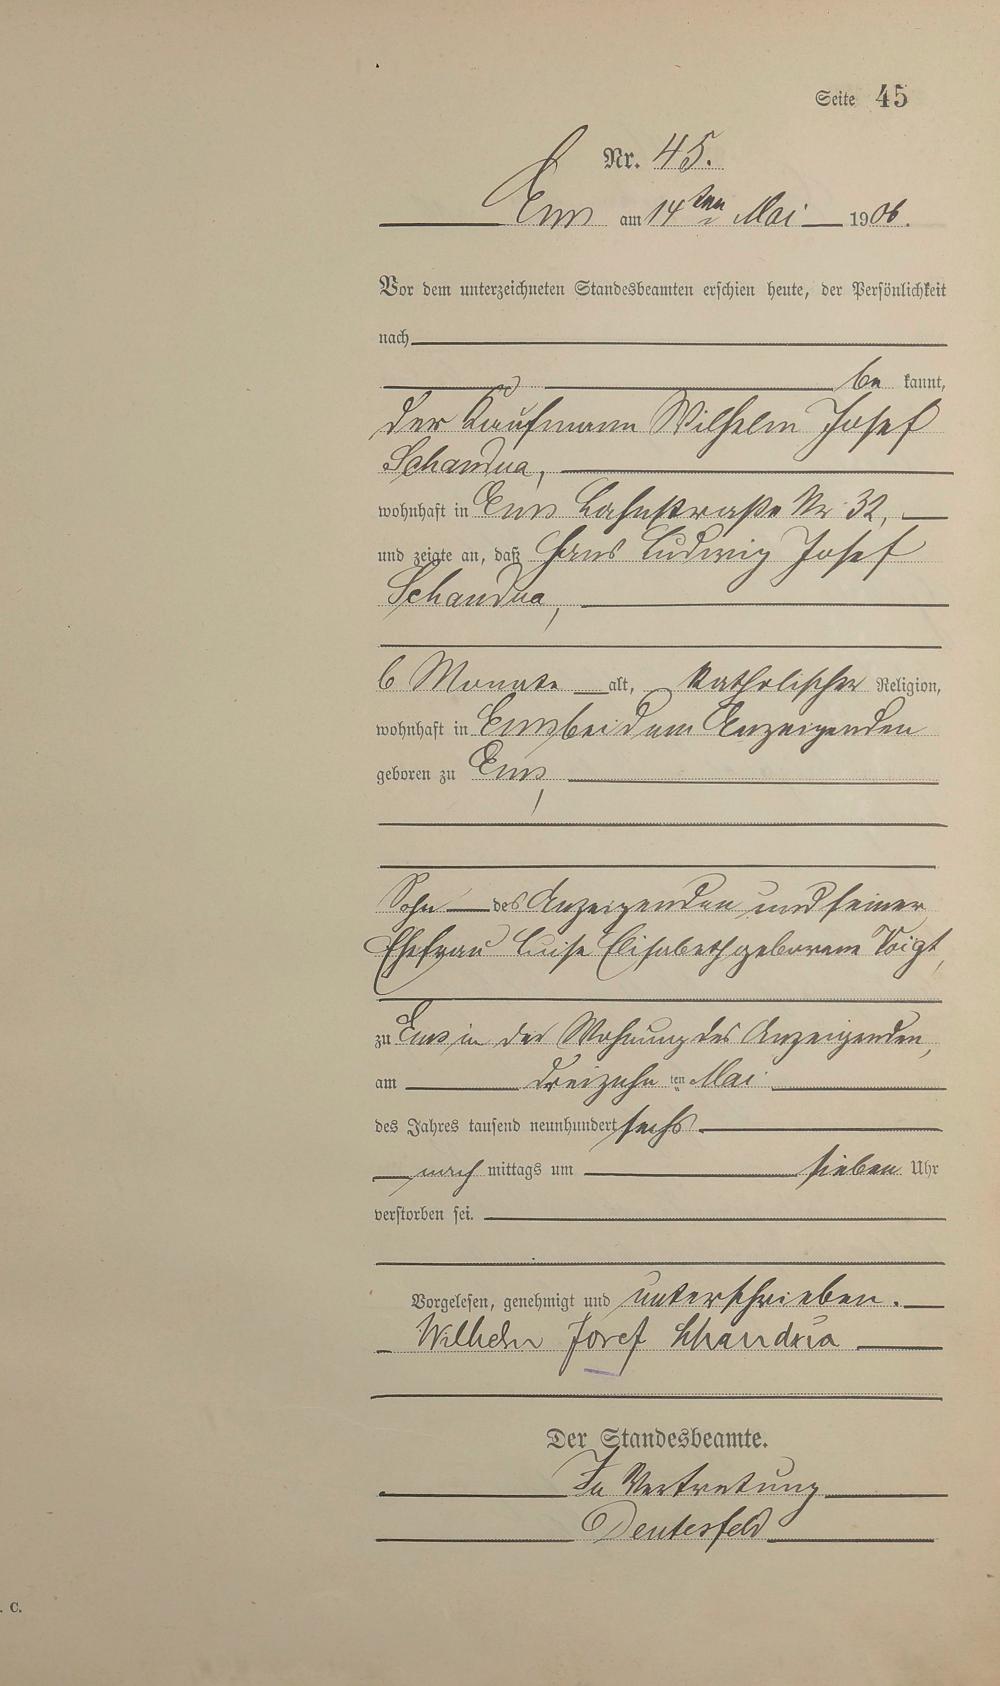 Seite 45
Nr. 45.
Ems am 14ten Mai 1906.
Vor dem unterzeichneten Standesbeamten erschien heute, der Persönlichkeit
nach
be kannt,
der Kaufmann Wilhelm Josef
Schandua,
wohnhaft in Ems Lahnstraße Nr 32,
und zeigte an, daß Hans Ludwig Josef
Schandua,
6 Monate alt, katholischer Religion,
wohnhaft in Ems bei dem Anzeigenden
geboren zu Ems,
Sohn des Anzeigenden und seiner
Ehefrau Luise Elisabeth geborene Voigt,
zu Ems in der Wohnung des Anzeigenden,
am dreizehnten Mai
des Jahres tausend neunhundert sechs
nach mittags um sieben Uhr
verstorben sei.
Vorgelesen, genehmigt und unterschrieben.
Wilhelm Josef Schandua
Der Standesbeamte.
In Vertretung
Deutesfeld
. C.